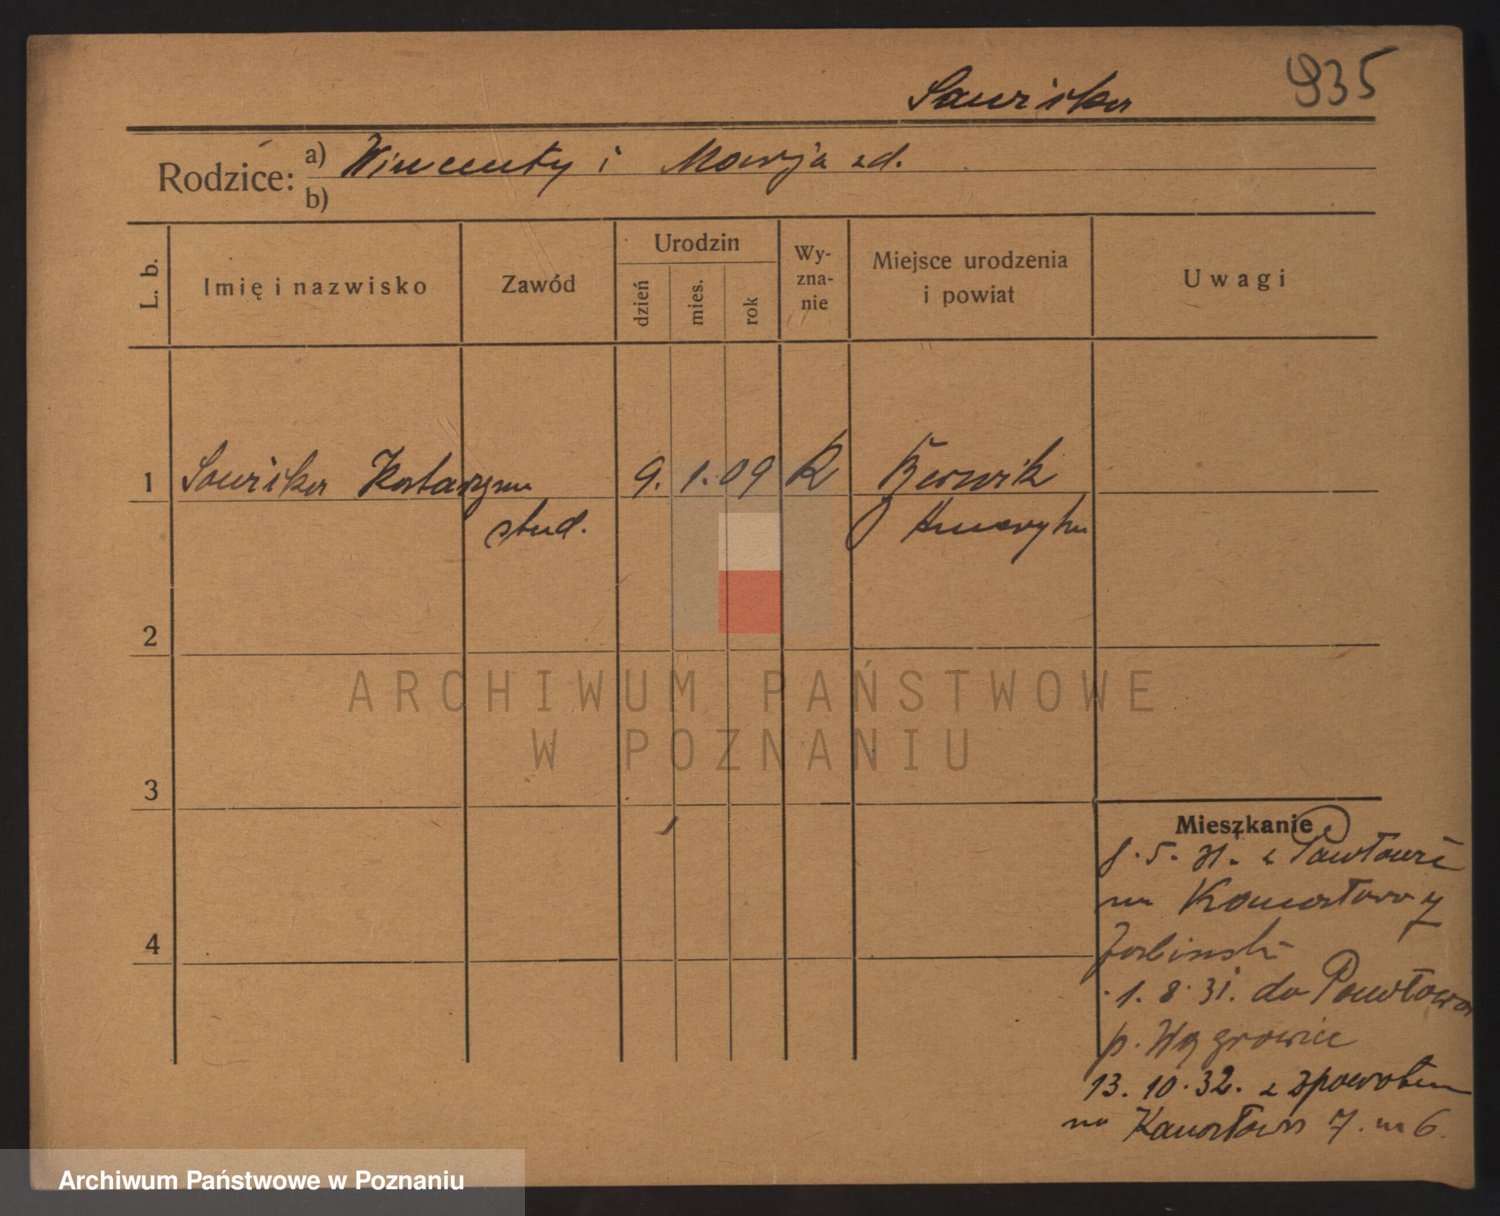 935
Sawiska
Rodzice: a) Wincenty i Marja zd.
b)
L. b.
Imię i nazwisko
Zawód
Urodzin
dzień
mies.
rok
Wy-
zna-
nie
Miejsce urodzenia
i powiat
Uwagi
1 Sawiska Katarzyna 9. 1. 09 R Berwik
stud. Ameryka
2
ARCHIWUM PAŃSTWOWE
W POZNANIU
3
Mieszkanie
8. 5. 31. z Pawłowic
na
1. 8. 31. do Pawłowa
p. Wągrowiec
4
13. 10. 32. z zpowrotem
na 7. m 6.
Archiwum Państwowe w Poznaniu